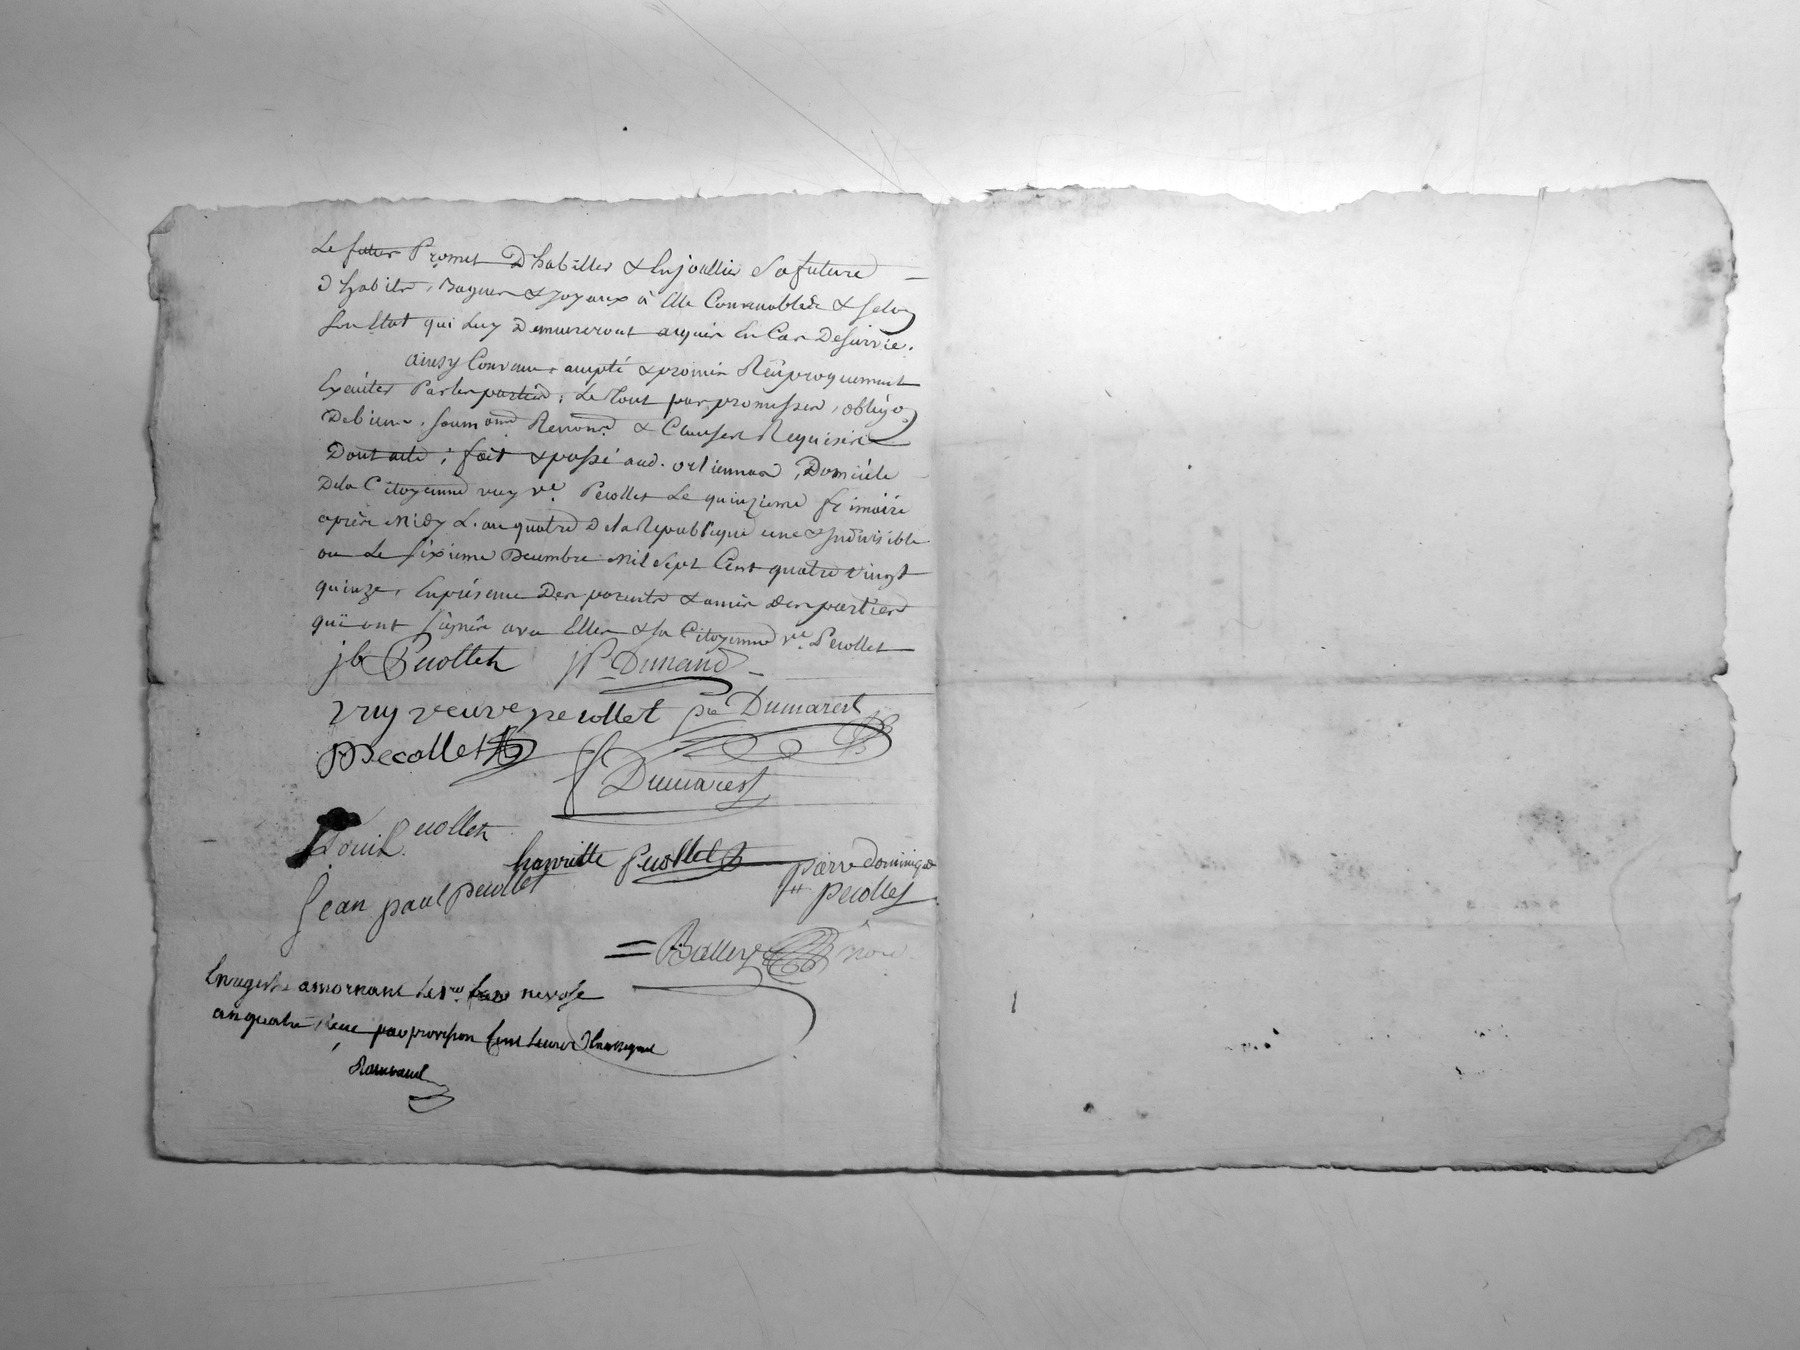 Le futur Promet D'habiller & Enjoallier Sa future
D'habits, Bagues & Joyaux à Elle Convenables & selon
Son Etat qui Luy Demeureront acquis En Cas De survie.
ainsy Convenu, accepté & promis Réciproquement
Exécuter Par les parties; Le Tout par promesses, obligaon
De biens, soumons Renons & Clauses Requises
Dont acte; fait & passé aud. orliennas, Domicile
De la Citoyenne vuy ve. Pecollet Le quinzieme frimaire
après Midy L'an quatre De la Republique une & Indivisible
ou Le sixieme Decembre Mil Sept Cent quatre vingt
quinze, En présence Des parents & amis des parties
qui ont signés avec Elles & la Citoyenne ve. Pecollet
jb Pecollet JP Dumand
vuy veuve pecollet pre Dumarest
Pecollet
Dumarest
Louis Pecollet
henriette Pecollet pierre dominique
Jean paul pecollet pecollet
Balley Nore
Enregistré a mornant le 1er nivose
an quatre, reçu par provision Cent